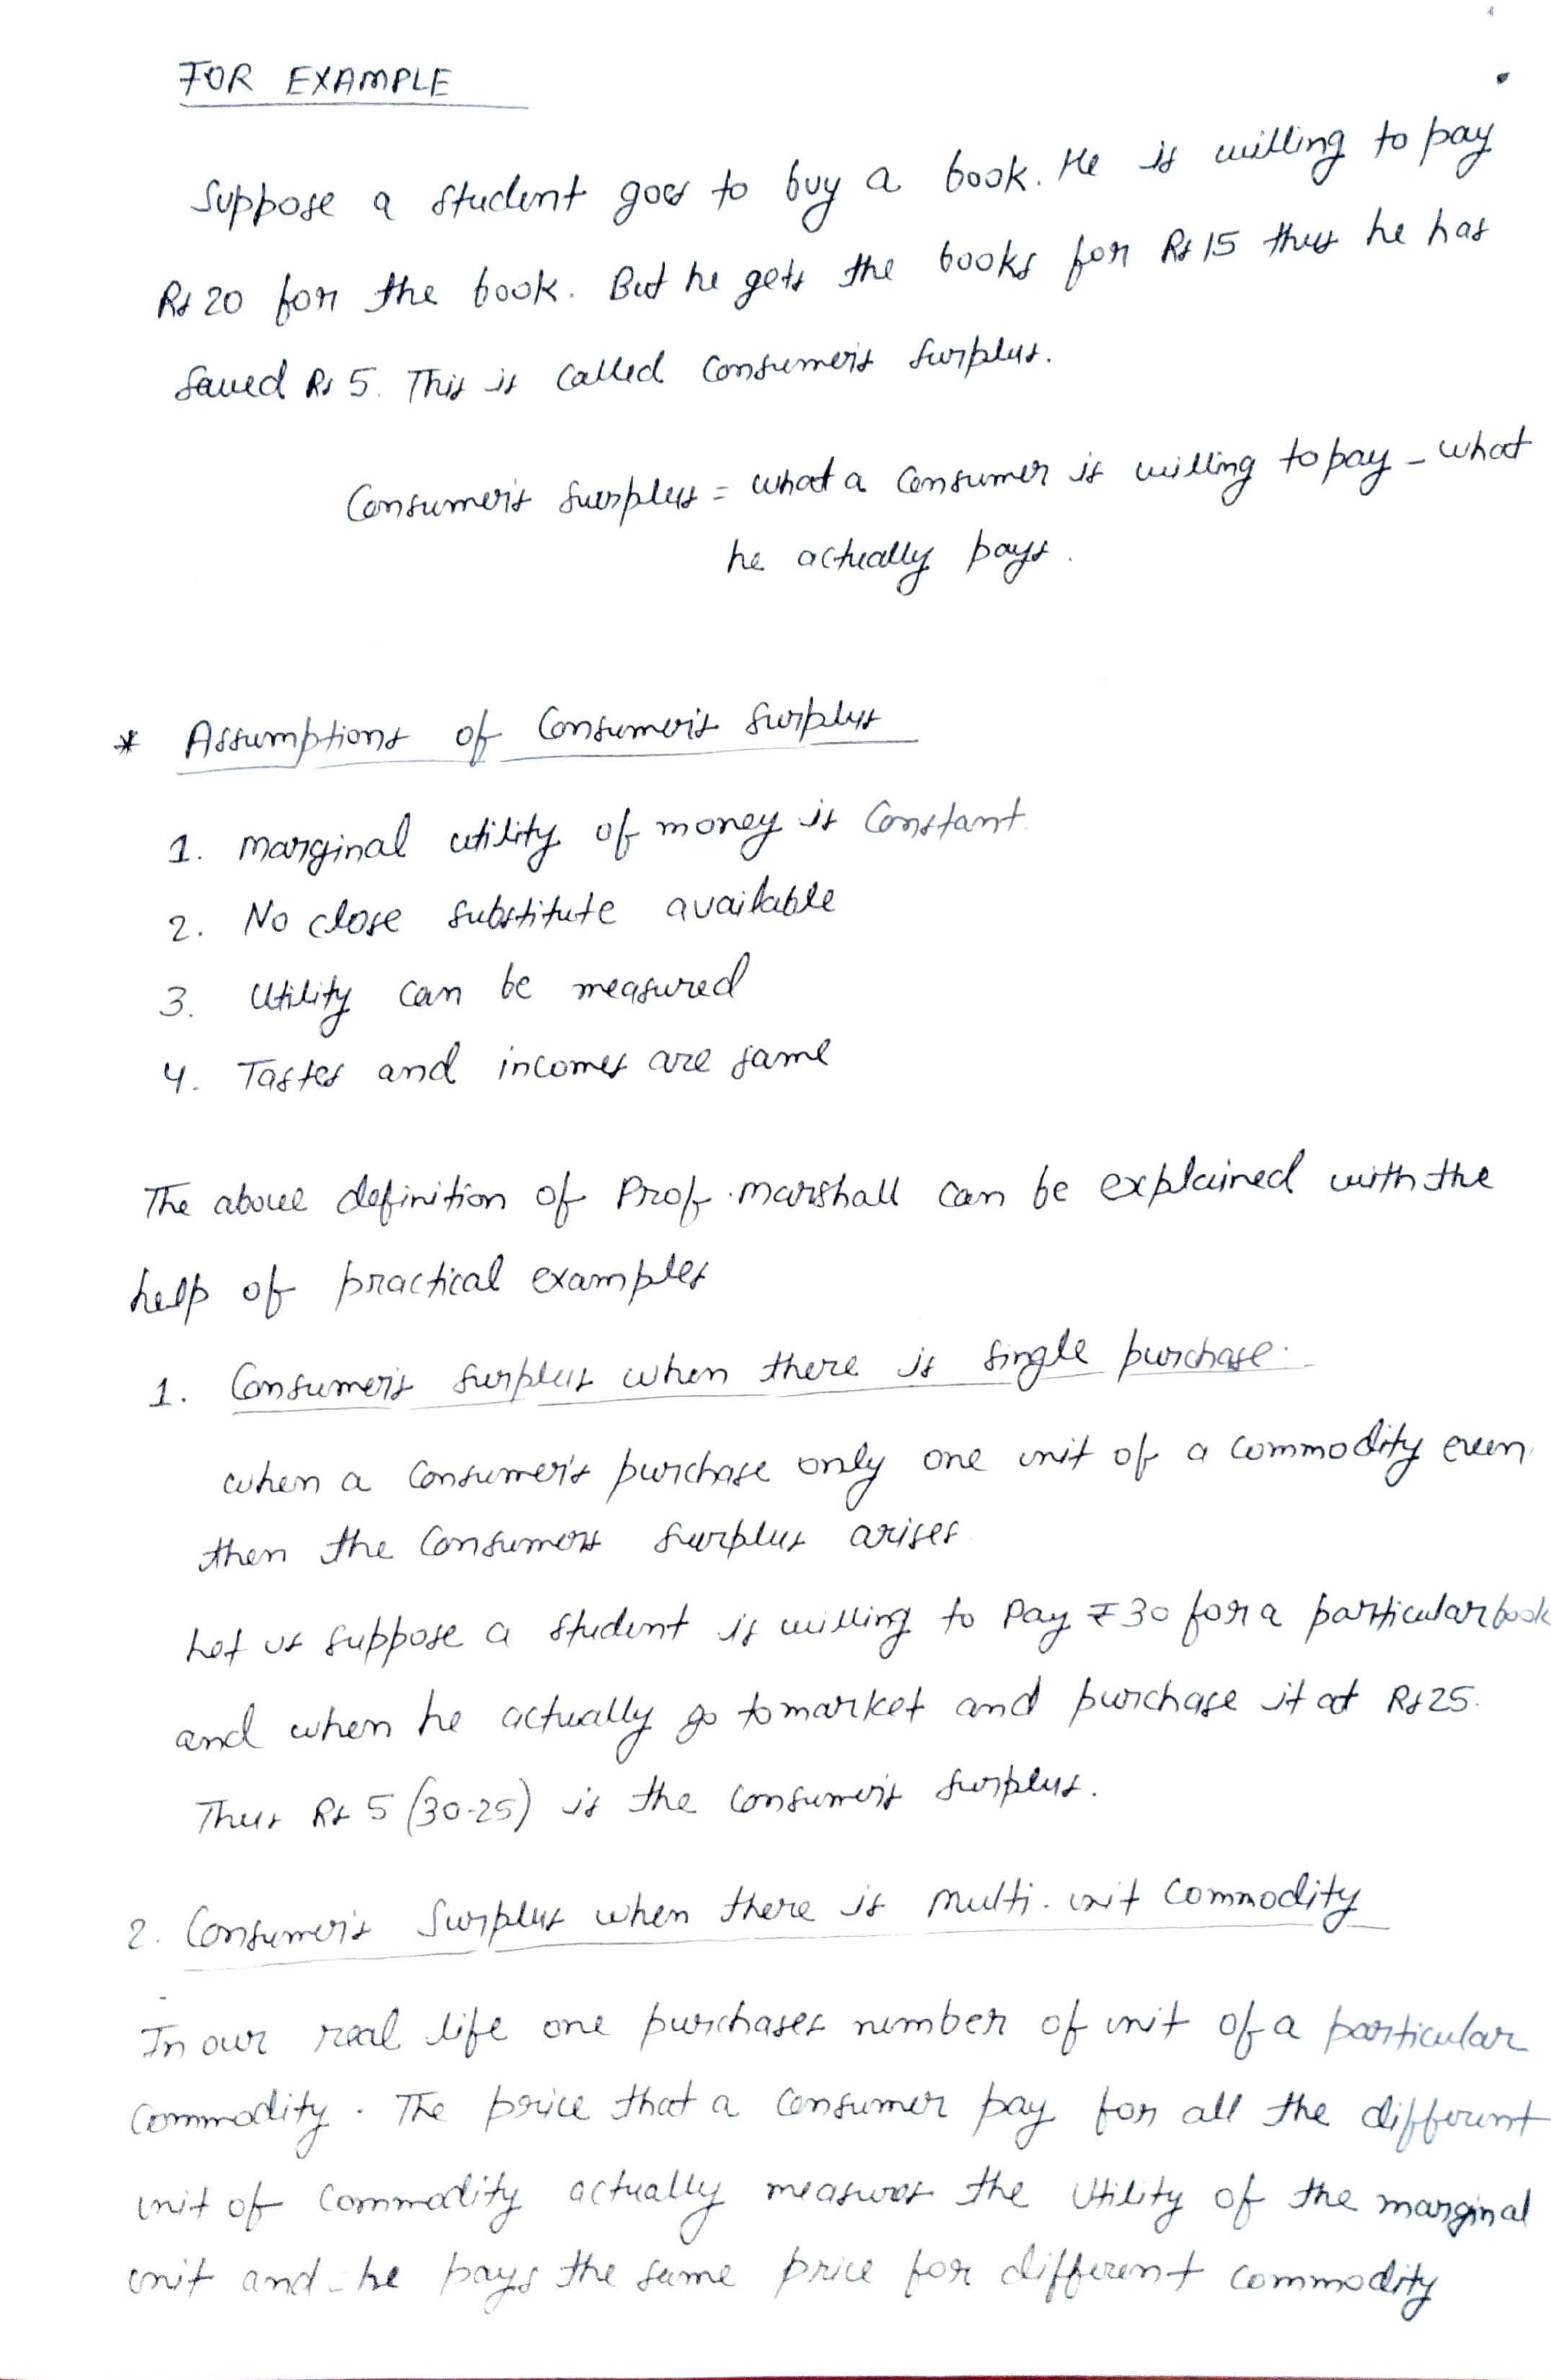 FOR EXAMPLE
Suppose a student goes to buy a book. He is willing to pay
Rs 20 for the book. But he gets the books for Rs 15 thus he has
saved Rs 5. This is called Consumer's surplus.
Consumer's surplus = what a consumer is willing to pay - what
he actually pays.
* Assumptions of Consumer's surplus
1. Marginal utility of money is Constant.
2. No close substitute available
3. Utility can be measured
4. Tastes and incomes are same
The above definition of Prof. Marshall can be explained with the
help of practical examples
1. Consumer's surplus when there is single purchase.
when a consumer's purchase only one unit of a commodity even
then the Consumers surplus arises.
Let us suppose a student is willing to pay ₹30 for a particular book
and when he actually go to market and purchase it at Rs 25.
Thus Rs 5 (30-25) is the consumer's surplus.
2. Consumer's Surplus when there is multi-unit Commodity
In our real life one purchases number of unit of a particular
Commodity. The price that a consumer pay for all the different
unit of commodity actually measures the utility of the marginal
unit and he pays the same price for different commodity